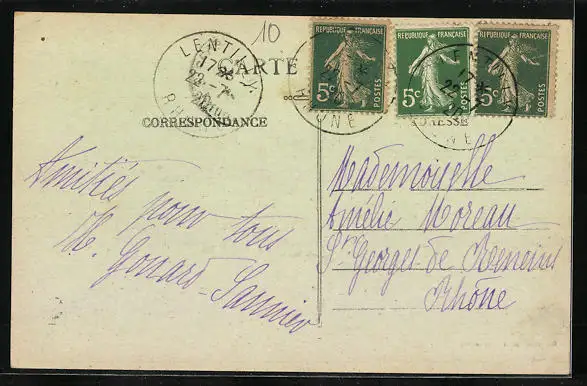 10
CARTE
CORRESPONDANCE
ADRESSE
LENTILLY
17
22 - 7
RHÔNE
REPUBLIQUE FRANÇAISE
5c
POSTES
REPUBLIQUE FRANÇAISE
5c
POSTES
REPUBLIQUE FRANÇAISE
5c
POSTES
LENTILLY
17
22
RHONE
Amitiés pour tous
Mademoiselle
Amélie Moreau
St Georges de Reneins
Rhône